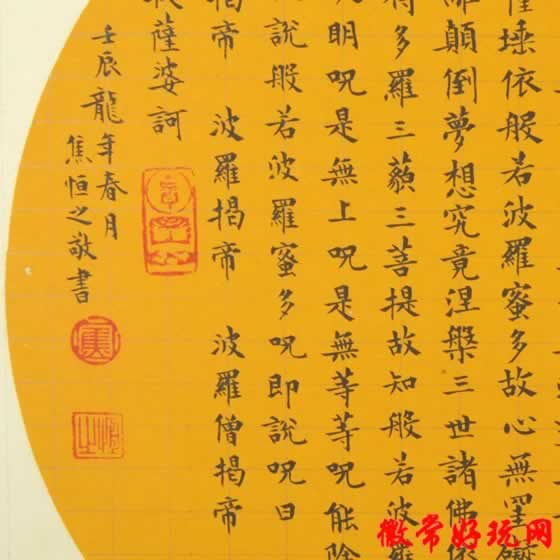 埵依般若波羅蜜多故心無罣礙
離顛倒夢想究竟涅槃三世諸佛依
得多羅三藐三菩提故知般若波羅
明呪是無上呪是無等等呪能除
說般若波羅蜜多呪即說呪曰
揭帝 波羅揭帝 波羅僧揭帝
薩婆訶
壬辰龍年春月
焦恒之敬書
焦
恒之
徽常好玩网